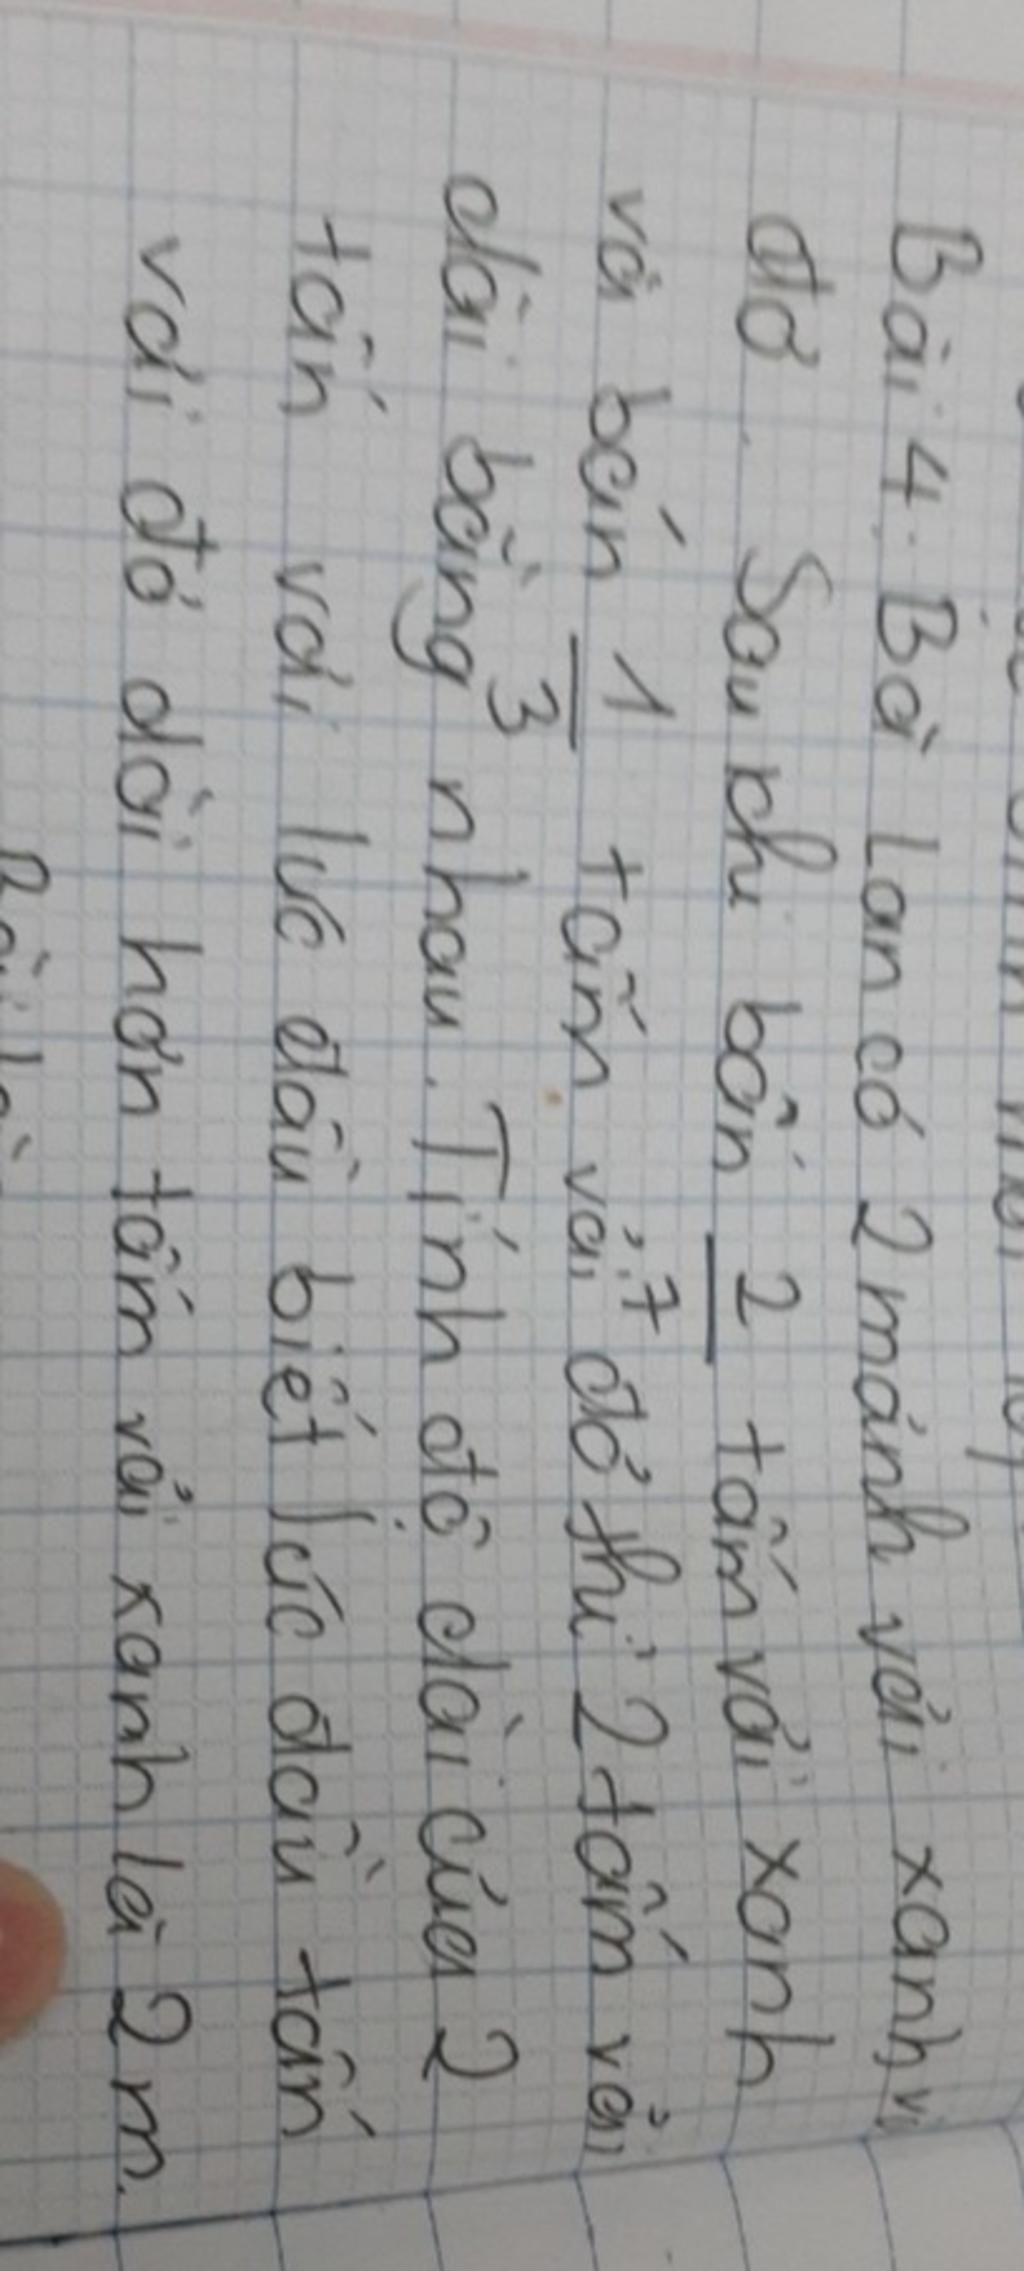 Bài 4. Bà Lan có 2 mảnh vải xanh và
đỏ. Sau khi bán 2/7 tấm vải xanh
và bán 1/3 tấm vải đỏ thì 2 tấm vải
dài bằng nhau. Tính độ dài của 2
tấn vải lúc đầu biết lúc đầu tấm
vải đỏ dài hơn tấm vải xanh là 2 m.